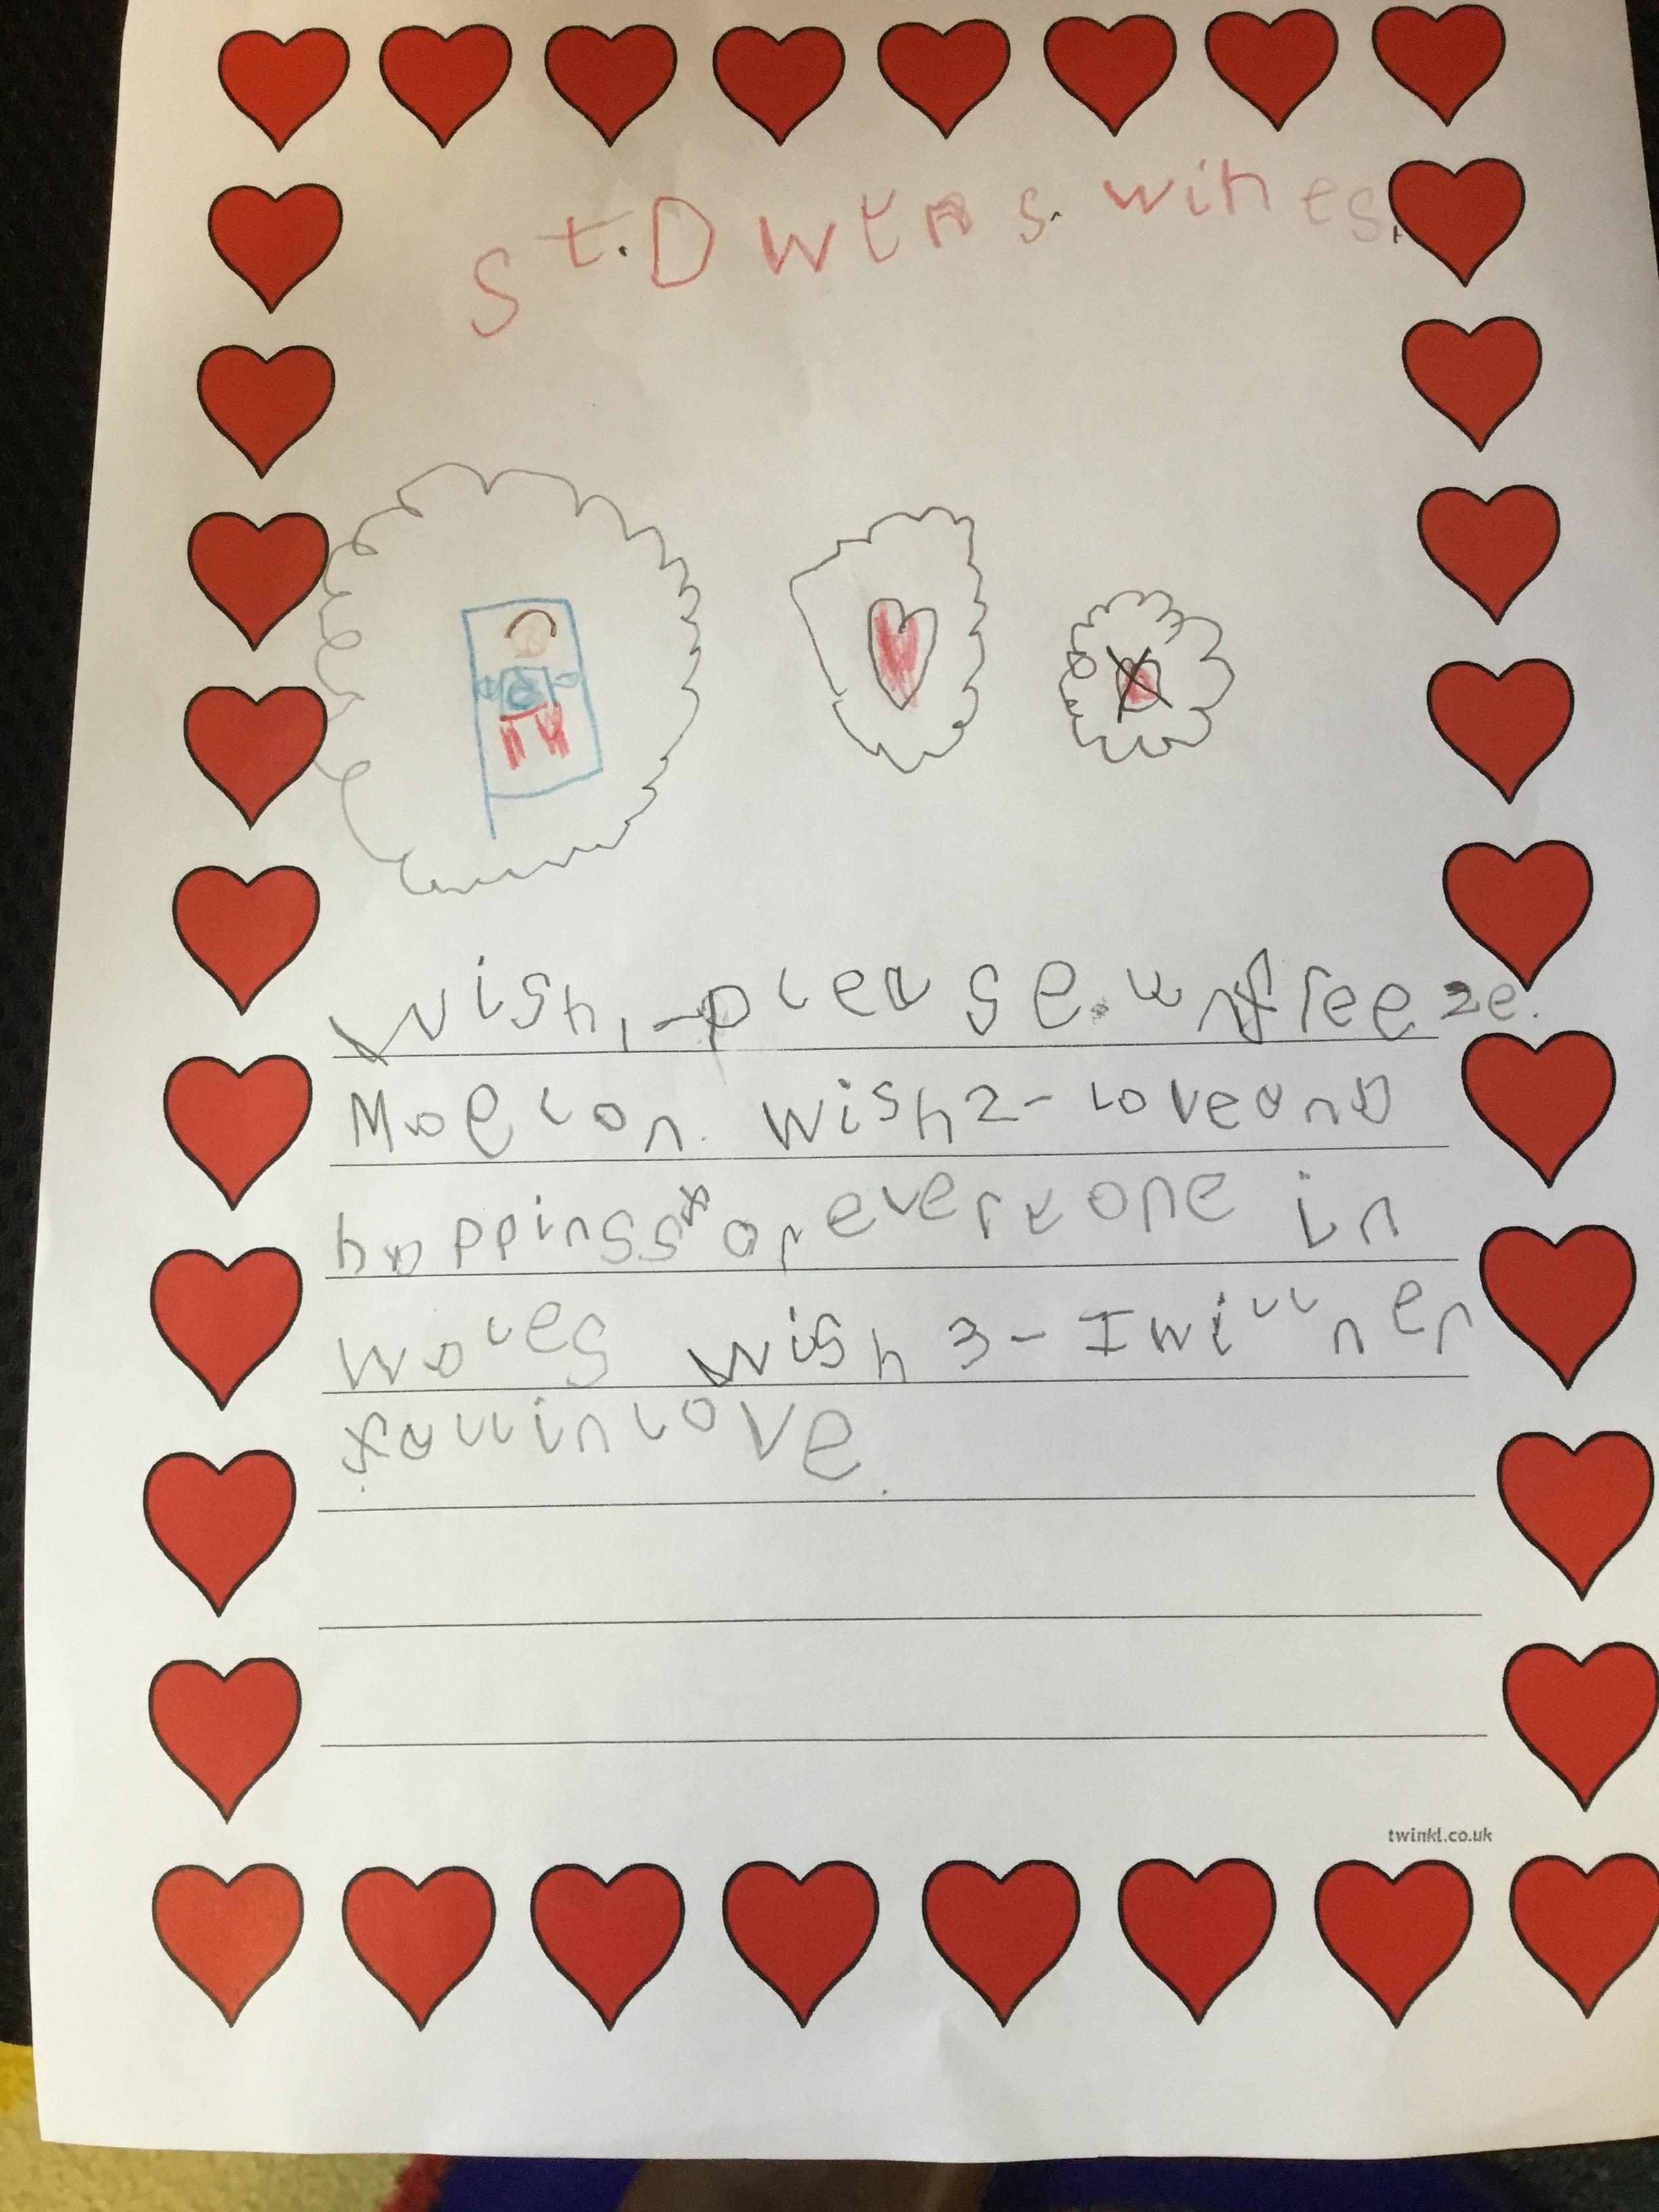 St. Dwtns. wihes.
Wish 1-please. unfreeze.
Maelon. Wish 2- love and
happinss for everyone in
Wales Wish 3- I will ner
fall in love.
twinkl.co.uk